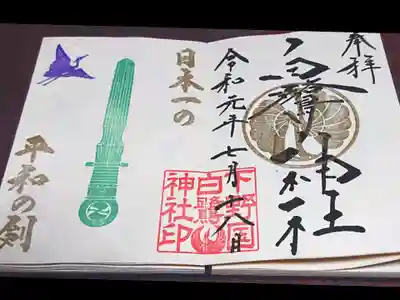 奉拝
白鷺神社
令和元年七月十八日
下野国
白鷺
神社印
日本一の
平和の剣